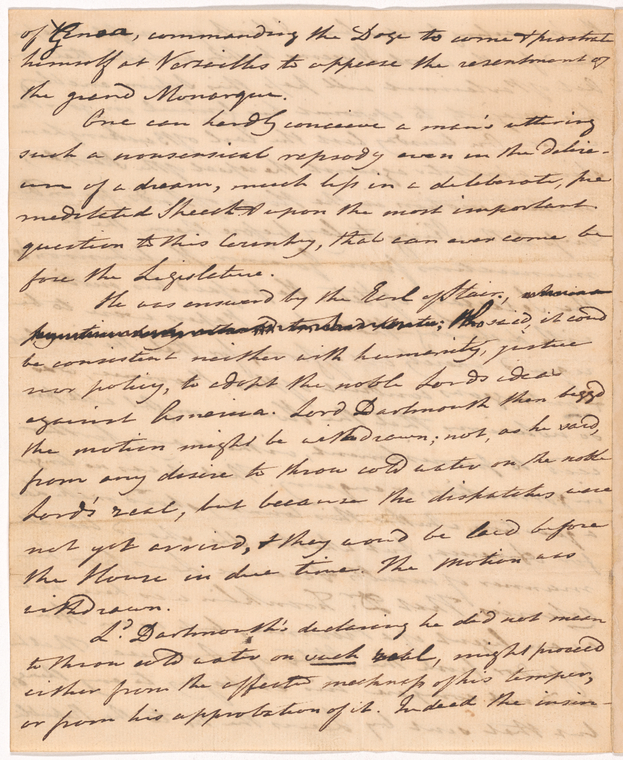 of Genoa, commanding the Doge to come & prostrate
himself at Versailles to appease the resentment of
the grand Monarque.
One can hardly conceive a man's uttering
such a nonsensical repsody even in the delire-
um of a dream, much less in a deliberate, pre
meditated Speech & upon the most important
question to this Country, that can ever come be
fore the Legislature.
He was answerd by the Earl of Stair,
Who said, it coud
be consistent neither with humanity, justice
nor policy, to adopt the noble Lords ideas
against America. Lord Dartmouth then begg'd
the motion might be withdrawn; not, as he said,
from any desire to throw cold water on the noble
Lord's zeal, but because the dispatches were
not yet arrived, & they woud be laid before
the House in due time. The motion was
withdrawn.
Ld. Dartmouth's declaring he did not mean
to throw cold water on such zeal, might proceed
either from the affected meekness of his temper,
or from his approbation of it. Indeed the insin-